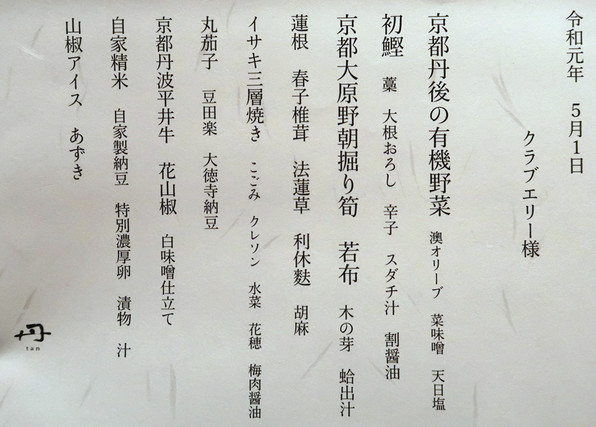 令和元年　5月1日
クラブエリー様
京都丹後の有機野菜　澳オリーブ　菜味噌　天日塩
初鰹　藁　大根おろし　辛子　スダチ汁　割醤油
京都大原野朝掘り筍　若布　木の芽　蛤出汁
蓮根　春子椎茸　法蓮草　利休麩　胡麻
イサキ三層焼き　こごみ　クレソン　水菜　花穂　梅肉醤油
丸茄子　豆田楽　大徳寺納豆
京都丹波平井牛　花山椒　白味噌仕立て
自家精米　自家製納豆　特別濃厚卵　漬物　汁
山椒アイス　あずき
丹
tan